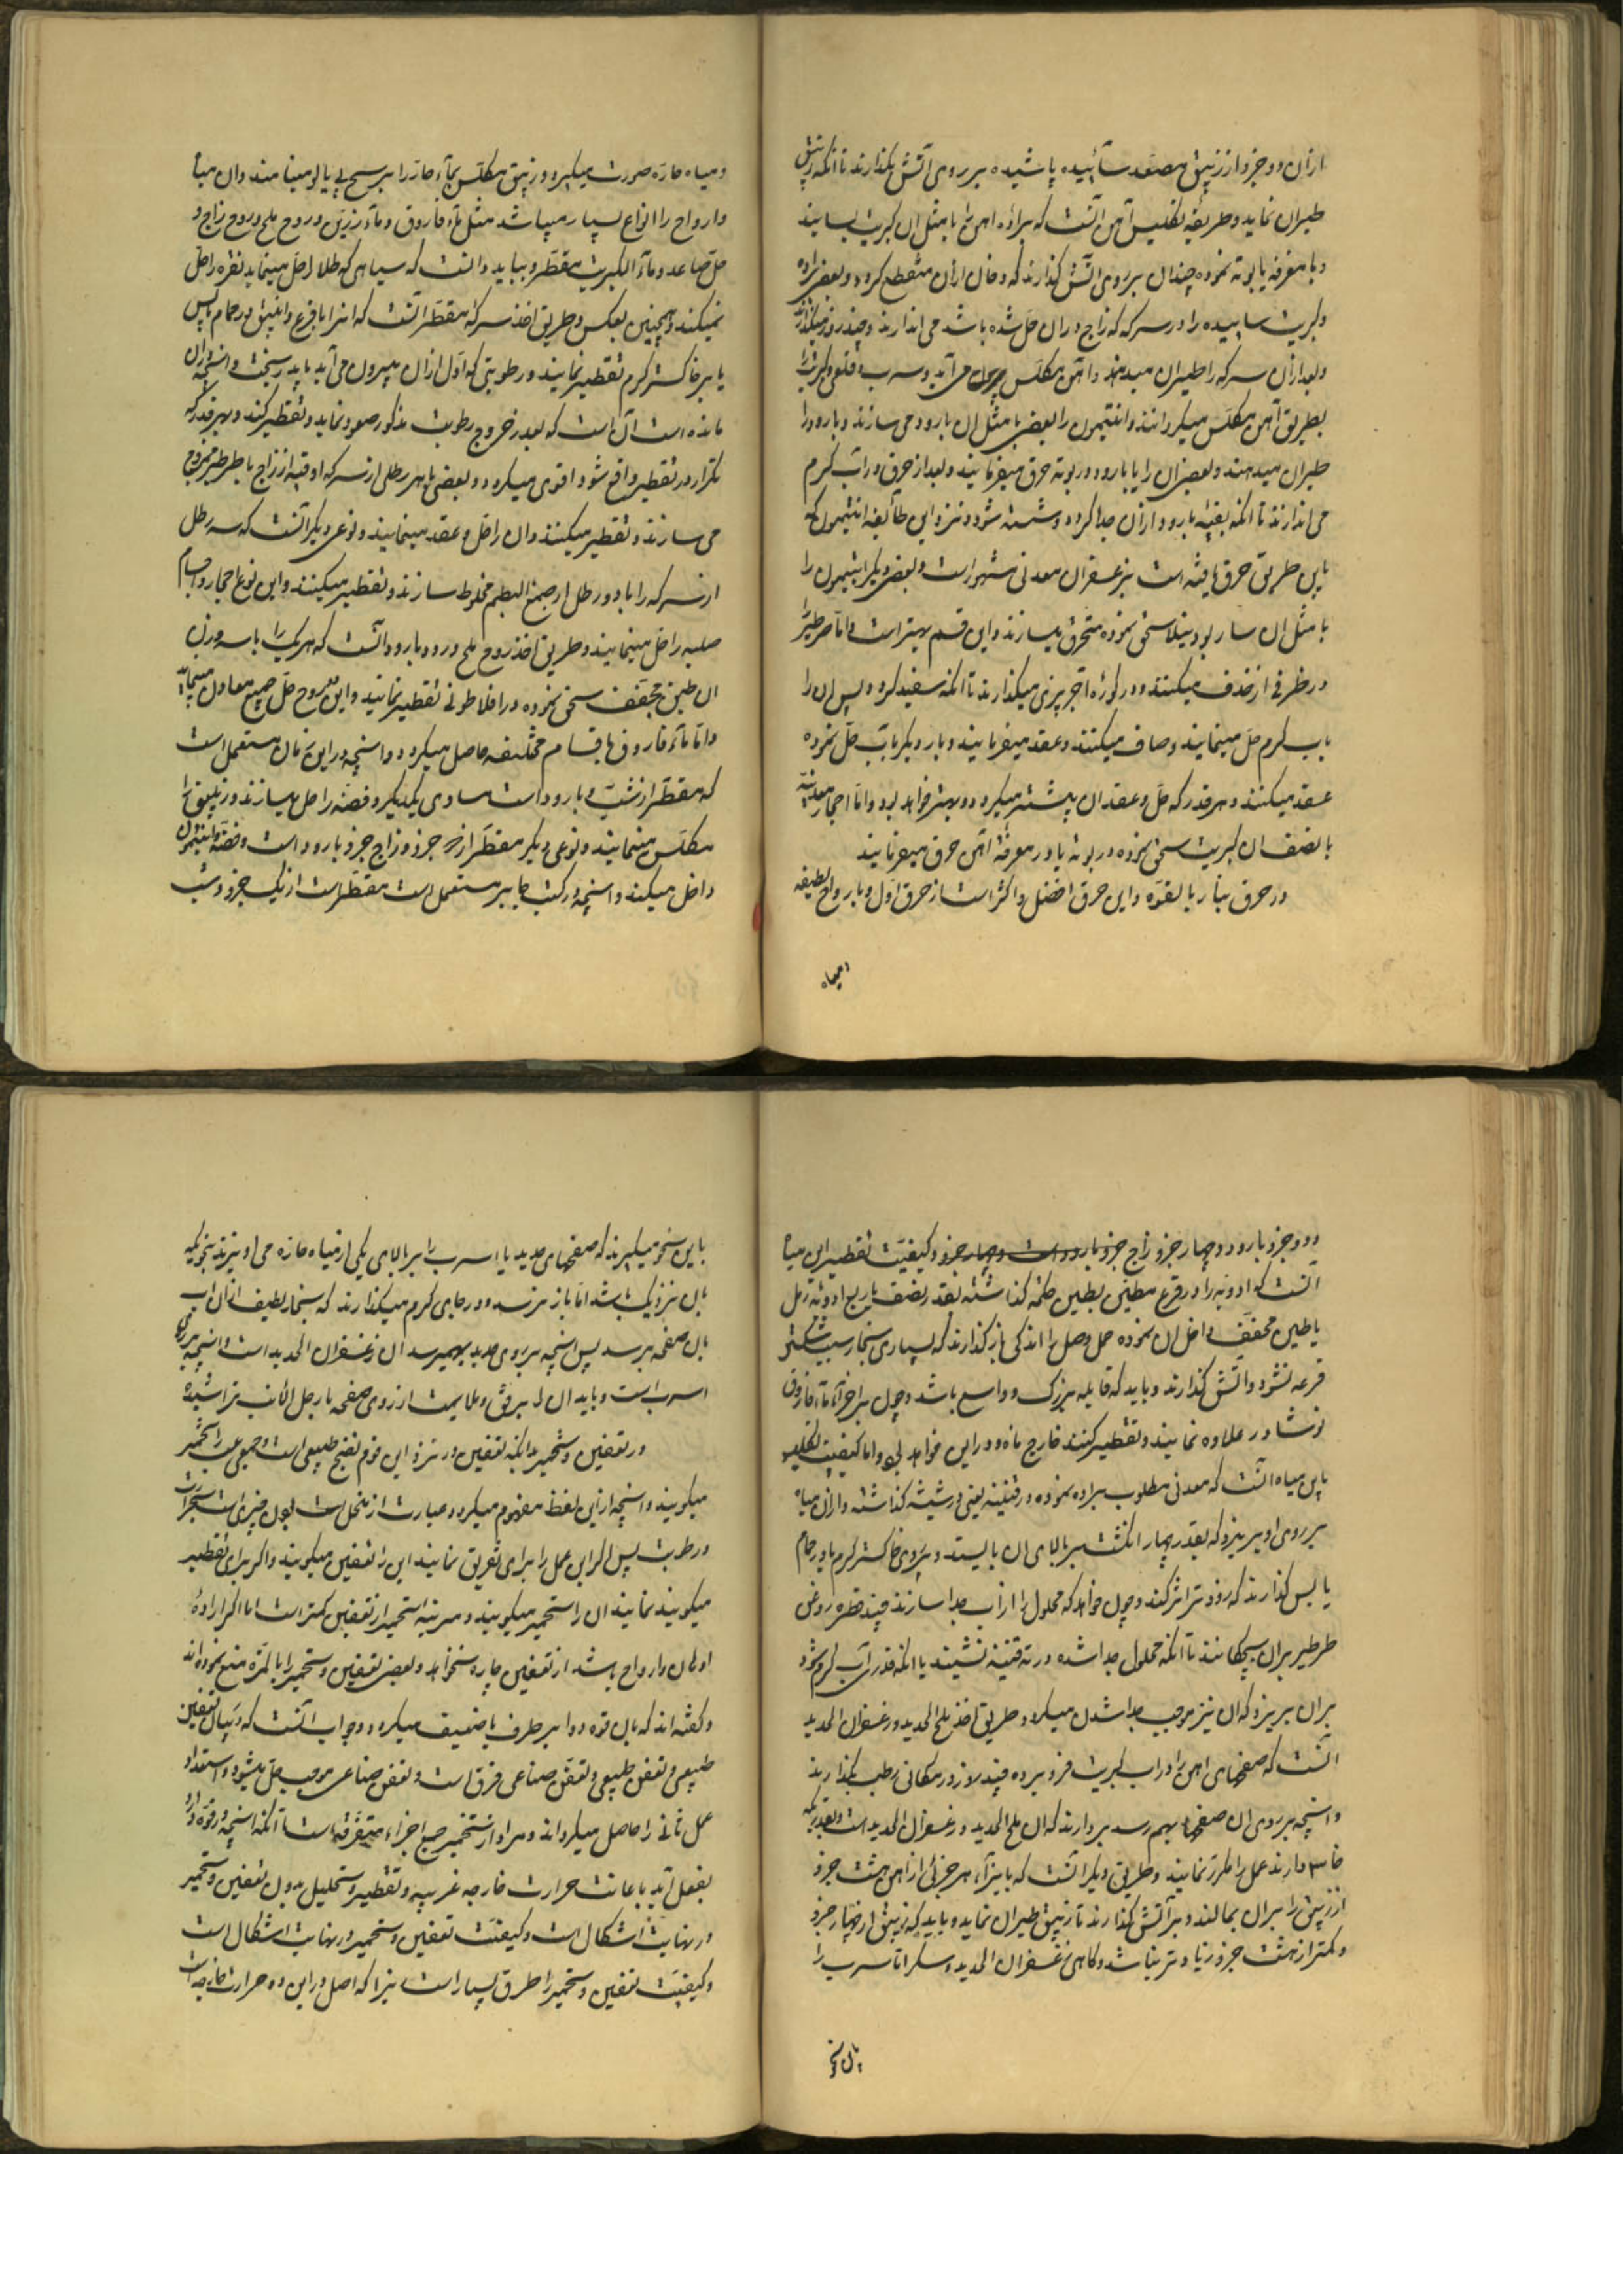 ازان دو جزو از زیبق مصعد سائیده پاشیده بر روی آتش بکذارند تا انکه زیبق
طیران نماید و طریقه تکلیس آهن آنست که براده اهن را با مثل ان کبریت بسایند
و با مغرفه یا بوته نموده چندان بر روی آتش کذارند که دخان ازان منقطع کردد و بعضی براده
و کبریت ساییده را در سرکه که زاج دران حل شده باشد می اندازند و چند روز میکذارند
و بعد ازان سرکه را طیران میدهند و آهن مکلس بیرون می آید و سرب و قلعی و کبریت را
بطریق آهن مکلس میکردانند و انتیمون را بعضی با مثل ان بارود می سازند و بارود را
طیران میدهند و بعضی ان را با بارود در بوته حرق میفرمایند و بعد از حرق در آب کرم
می اندازند تا انکه بقیه بارود ازان جدا کردد و شسته شود و نزد این طائفه انتیمون که
باین طریق حرق یافته است بزعفران معدنی مشهور است و بعضی دیکر انتیمون را
با مثل ان بارود سحق نموده متحرق میسازند و این قسم بهتر است و اما طرطیر را
در ظرفی از خذف میکنند و در کوره آجر پزی میکذارند تا انکه سفید کردد پس ان را
باب کرم حل مینمایند و صاف میکنند و عقد میفرمایند و بار دیکر بآب حل نموده
عقد میکنند و هر قدر که حل و عقد ان بیشتر میکردد بهتر خواهد بود و اما احجار معدنیه
با نصف ان کبریت سحق نموده در بوته یا در مغرفه آهن حرق میفرمایند
در حرق بنار بالقوه و این حرق افضل و اکثر است از حرق اول و بارواح لطیفه
ومیاه
و میاه حاره صورت میکیرد و زیبق مکلس بمآء حار را برسیپیالو مینامند و ان میاه
و ارواح را انواع بسیار میباشد مثل ماء فاروق و مآء رزین و روح ملح و روح زاج و
خل صاعد و مآء الکبریت مقطر و بباید دانست که میاهی که طلا را حل مینماید نقره را حل
نمیکند و همچنین بعکس و طریق اخذ سرکه مقطر آنست که انرا با قرع و انبیق در حمام یابس
یا بر خاکستر کرم تقطیر نمایند و رطوبتی که اول ازان بیرون می آید باید ریخت و انچه دران
مانده است آن است که بعد خروج رطوبت مذکور صعود نماید و تقطیر کند و هر قدر که
تکرار در تقطیر واقع شود اقوی میکردد و بعضی با هر رطلی از سرکه اوقیه از زاج با طرطیر ممزوج
می سازند و تقطیر میکنند و ان را حل و عقد مینمایند و نوعی دیکر آنست که سه رطل
از سرکه را با دو رطل از صمغ البطم مخلوط سازند و تقطیر میکنند و این نوع احجار و اجسام
صلبه را حل مینمایند و طریق اخذ روح ملح و رود بارود آنست که هر یک را با سه وزن
ان طین مجفف سحق نموده در افلاطونی تقطیر نمایند و این روح حل جمیع معادن مینماید
و اما مآء فاروق باقسام مختلفه حاصل میکردد و انچه در این زمان مستعمل است
که مقطر از شب و بارود است مساوی یکدیکر و فضه را حل میسازند و زیبق را
مکلس مینمایند و نوعی دیکر مقطر از جزو زاج جزو بارود است و فضه و انتیمون
داخل میکند و انچه در کتب جابر مستعمل است مقطر است از یک جزو و شب
و دو جزو بارود و چهار جزو زاج جزو بارود است و چهار جزو و کیفیت تقطیر این میاه
آنست که ادویه را در قرع مطین بطین حکمة کذاشته بقدر نصف یا ربع ادویه رمل
یا طین مجفف داخل ان نموده محل وصل را اندکی باز کذارند که بسیاری بخار سبب شکستن
قرعه نشود و آتش کذارند و باید که قابله بزرک و واسع باشد و چون بر اجزآء ماء فاروق
نوشادر علاوه نمایند و تقطیر کنند خارج ماند و در این خواهد بود و اما کیفیت تکلیس
باین میاه آنست که معدنی مطلوب براده نموده در قنینه یعنی در شیشه کذاشته و ازان میاه
بر روی او بریزد که بقدر چهار انکشت بر بالای ان بایستد و بر روی خاکستر کرم یا در حمام
یابس کذارند که زودتر اثر کند و چون خواهد که محلول را از آب جدا سازند چند قطره روغن
طرطیر بران بچکانند تا انکه محلول جدا شده در ته قنینه نشیند یا انکه قدری آب کرم شود
بران بریزد که ان نیز موجب جدا شدن میکردد و طریق اخذ ملح الحدید و زعفران الحدید
آنست که صفحهای اهن را در آب کبریت فرو برده چند روز در مکانی رطب بکذارند
و انچه بر روی ان صفحها بهم رسد بردارند که ان ملح الحدید و زعفران الحدید است و بقدریکه
خواسته دارند عمل را مکرر نمایند و طریق دیکر آنست که بایزآء هر جزئی از اهن هشت جزو
از زیبق را بران بمالند و بر آتش کذارند تا زیبق طیران نماید و باید که زیبق از چهار جزو
و کمتر از هشت جزو زیادتر نباشد و کاهی زعفران الحدید و سکر اما سرب را
بان نحو
باین نحو میکیرند که صفحهای حدید یا اسرب را بر بالای یکی از میاه حاره می اویزند بنحویکه
بان نزدیک باشد اما باز نرسد و در جای کرم میکذارند که بخار لطیف ازان آب
بان صفحه برسد پس انچه بر روی حدید بهم رسد ان زعفران الحدید است و انچه بر روی
اسرب است و باید ان را برفق و ملایمت از روی صفحه با رجل الارنب تراشیده
در تعفین و تخمیر بدانکه تعفین در نزد این قوم نضج طبیعی است و جمعی را تخمیر
میکویند و انچه ازین لفظ مفهوم میکردد عبارت از منحل است بدون چیزی است بحرارت
و رطوبت پس اکر این عمل را برای تفریق نمایند این را تعفین میکویند و اکر برای تقطیر
میکویند نمایند ان را تخمیر میکویند و مرتبه تخمیر از تعفین کمتر است اما اکر اراده
ادهان و ارواح باشد از تعفین چاره نخواهد و بعضی تعفین و تخمیر را بالمره منع نموده اند
و کفته اند که بان قوه دوا بر طرف یا ضعیف میکردد و جواب آنست که در میان تعفین
طبیعی و تعفن طبیعی و تعفن صناعی فرق است و تعفن صناعی موجب حل میشود و استعداد
عمل ثانی را حاصل میکرداند و مراد از تخمیر جمع اجزاء متفرقه است تا انکه انچه در قوه دارد
بفعل آید باعانت حرارت خارجه غریبه و تقطیر و تحلیل بدون تعفین و تخمیر
در نهایت اشکال است و کیفیت تعفین و تخمیر در نهایت اشکال است
و کیفیت تعفین و تخمیر را طرق بسیار است زیرا که اصل در این دو حرارت خارجه است